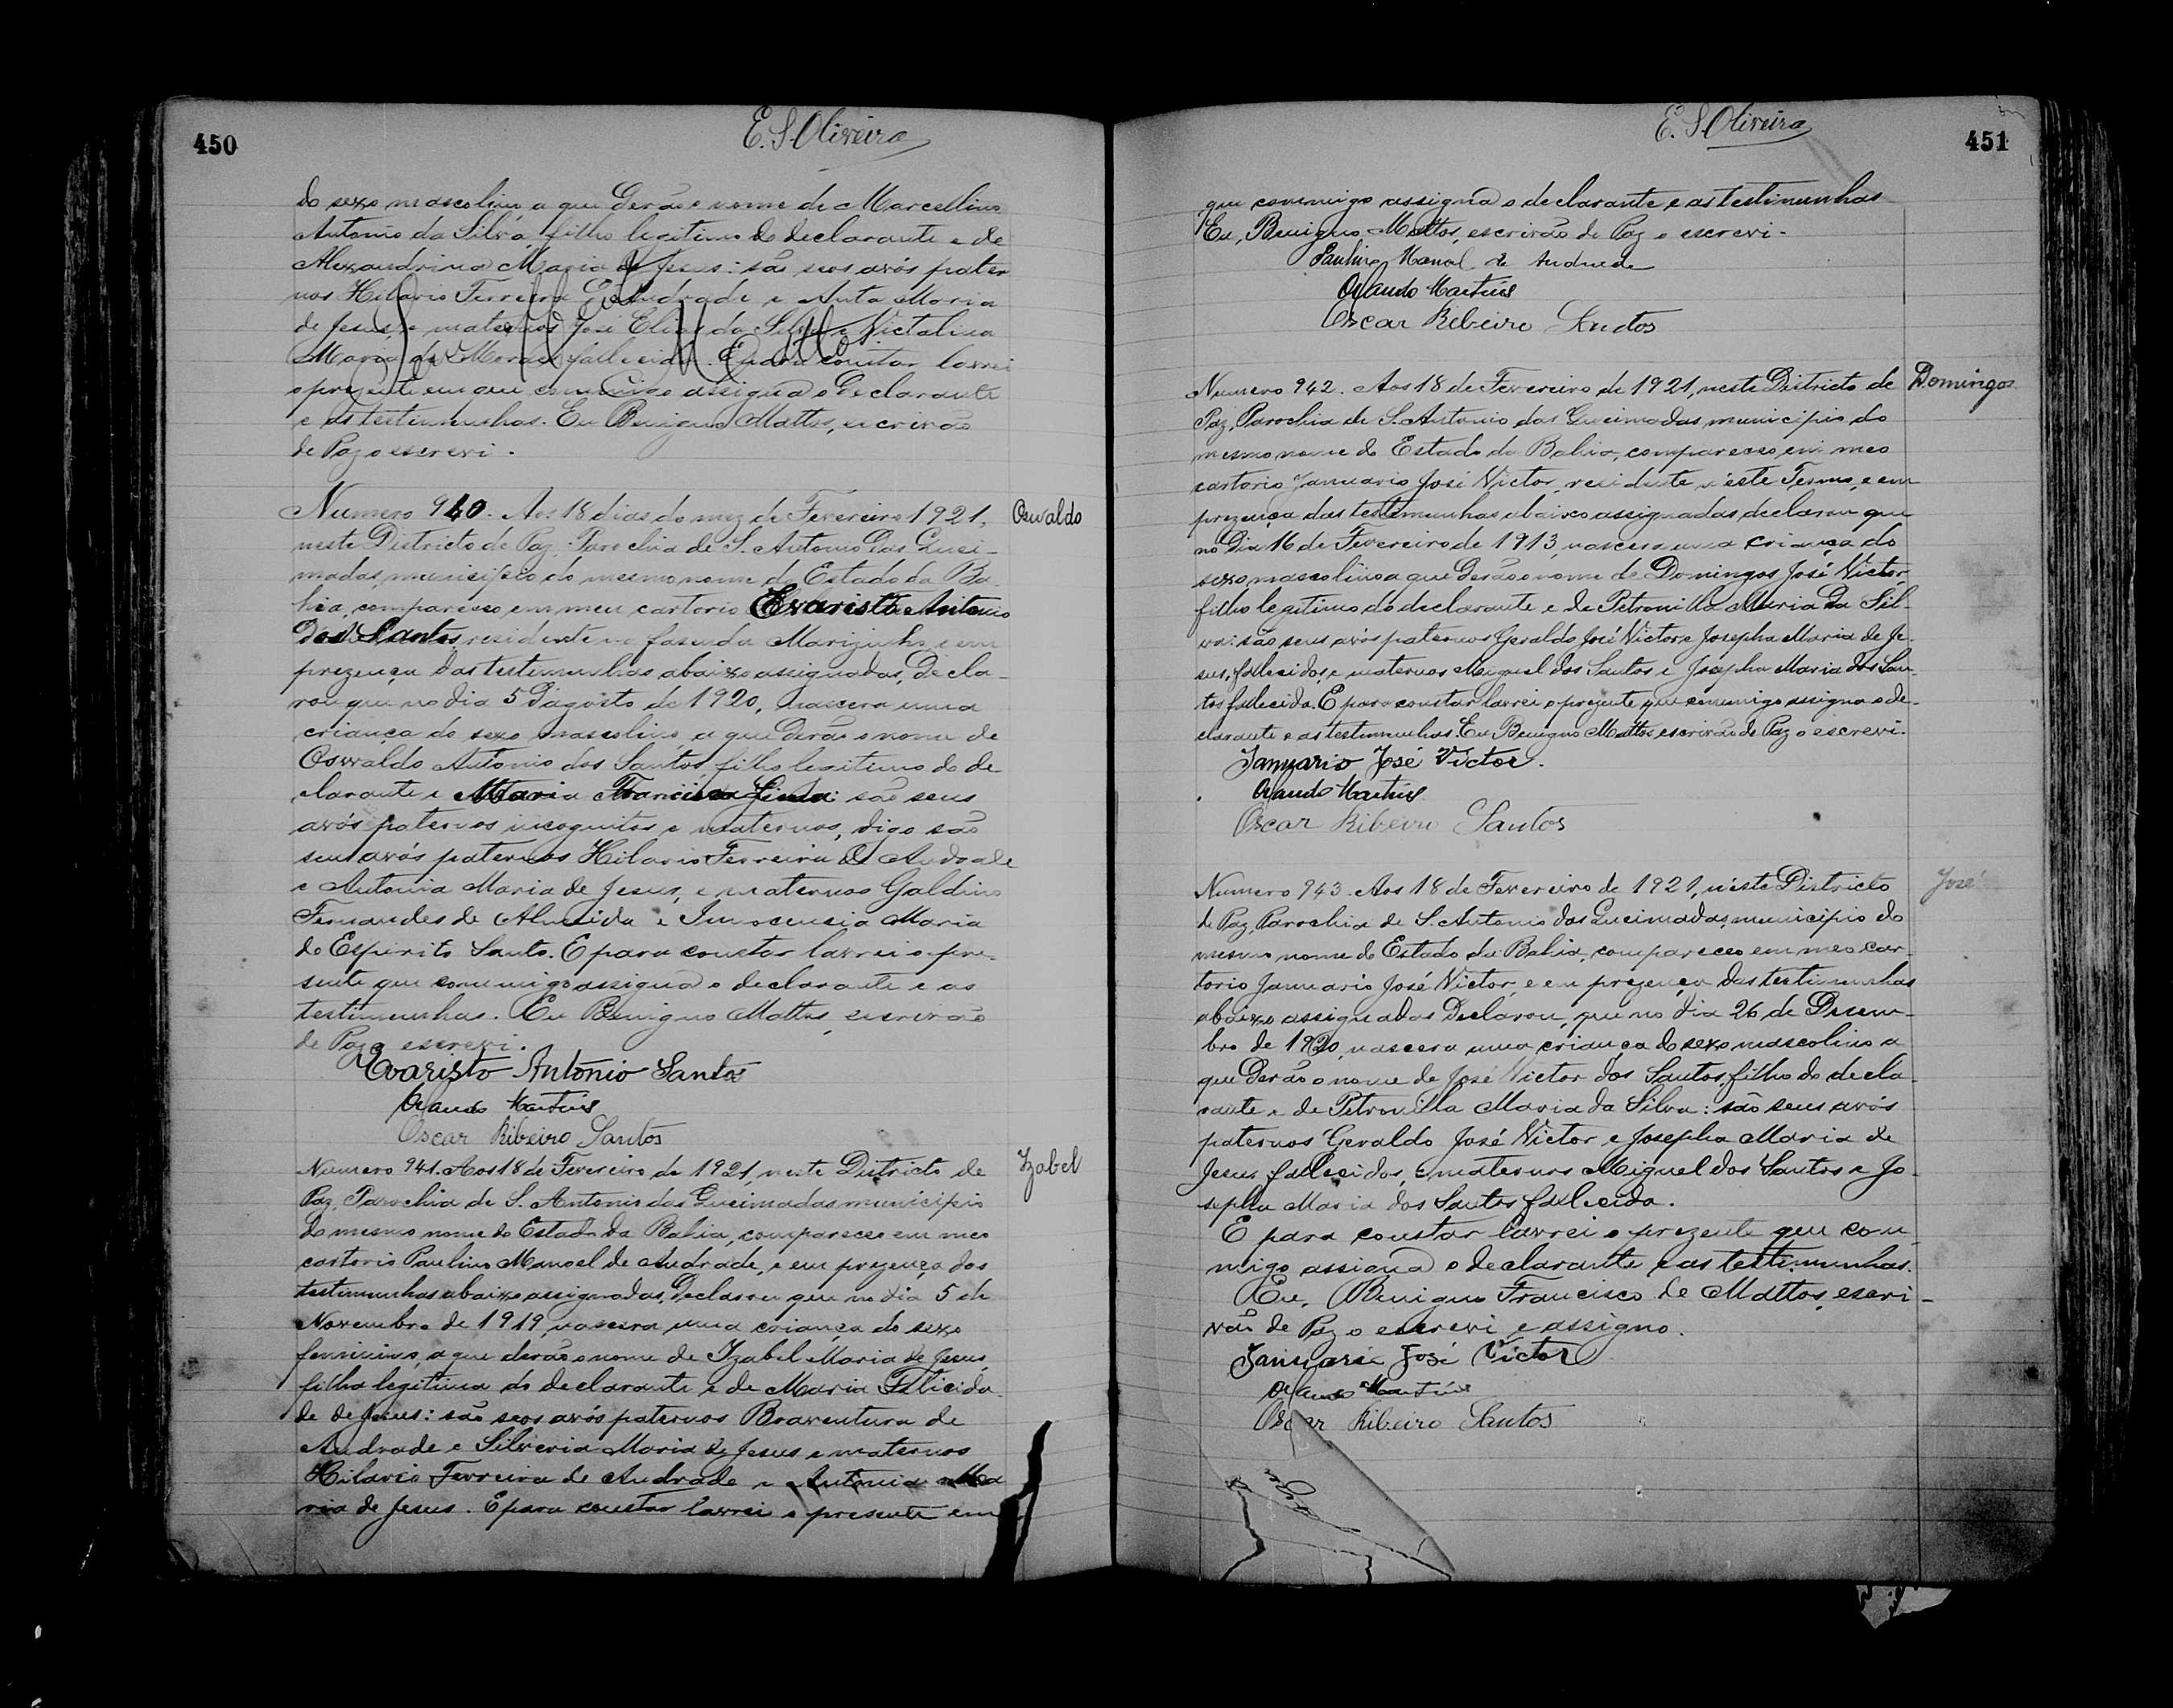 450
E. S. Oliveira
do sexo mascolino a que derão o nome de Marcellino
Antonio da Silva, filho legitimo do declarante e de
Alexandrina Maria de Jesus: são seos avós pater
nos Hilario Ferreira de Andrade e Anta Maria
de Jesus e maternos José Elias da Silva e Victalina
Maria de fallecida. E para constar lavrei
o prezente em que commigo assigna o declarante
e as testimunhas. Eu Benigno Mattos, escrivão
de Paz o escrevi.
Numero 940. Aos 18 dias do mez de Fevereiro 1921,
Oswaldo
neste Districto de Paz, Parochia de S. Antonio das Quei-
madas, municipio do mesmo nome do Estado da Ba-
hia, compareceo em meu cartorio Evaristo Antonio
dos Santos, residente na fasenda Marizinho, e em
prezença das testimunhas abaixo assignadas, decla-
rou que no dia 5 d'agosto de 1920, nascera uma
criança do sexo mascolino, a que derão o nome de
Oswaldo Antonio dos Santos, filho legitimo do de
clarante e Maria Francisca Lima: são seus
avós paternos incognitos e maternos, digo são
seus avós paternos Hilario Ferreira de Andrade
e Antonia Maria de Jesus, e maternos Galdino
Fernandes de Almeida e Innocencia Maria
do Espirito Santo. E para constar lavrei o pre-
sente que commigo assigna o declarante e as
testimunhas. Eu Benigno Mattos, escrivão
de Paz o escrevi.
Evaristo Antonio Santos
Orlando Martins
Oscar Ribeiro Santos
Numero 941. Aos 18 de Fevereiro de 1921, neste Districto de
Izabel
Paz, Parochia de S. Antonio das Queimadas municipio
do mesmo nome do Estado da Bahia, compareceo em meo
cartorio Paulino Manoel de Andrade, e em prezença das
testimunhas abaixo assignadas, declarou que no dia 5 de
Novembro de 1919, nascera uma criança do sexo
feminino, a que derão o nome de Izabel Maria de Jesus,
filha legitima do declarante e de Maria Felicida-
de de Jesus: são seos avós paternos Boaventura de
Andrade e Silveria Maria de Jesus e maternos
Hilario Ferreira de Andrade e Antonia Ma
ria de Jesus. E para constar lavrei o presente em
E. S. Oliveira
451
que commigo assigna o declarante e as testimunhas
Eu, Benigno Mattos, escrivão de Paz o escrevi.
Paulino Manoel de Andrade
Orlando Martins
Oscar Ribeiro Santos
Numero 942. Aos 18 de Fevereiro de 1921, neste Districto de
Domingos
Paz, Parochia de S. Antonio das Queimadas municipio do
mesmo nome do Estado da Bahia, compareceo em meo
cartorio Januario José Victor, residente n'este Termo, e em
prezença das testemunhas abaixo assignadas declarou que
no dia 16 de Fevereiro de 1913, nascera uma criança do
sexo mascolino a que derão o nome de Domingos José Victor,
filho legitimo do declarante e de Petronilla Maria da Sil-
va: são seus avós paternos Geraldo José Victor e Josepha Maria de Je-
sus, fallecidos, e maternos Miguel dos Santos e Josepha Maria dos San-
tos fallecida. E para constar lavrei o prezente que commigo assigna o de-
clarante e as testimunhas. Eu Benigno Mattos escrivão de Paz o escrevi.
Januario José Victor.
Orlando Martins
Oscar Ribeiro Santos
Numero 943. Aos 18 de Fevereiro de 1921, n'este Districto
José
de Paz, Parochia de S. Antonio das Queimadas, municipio do
mesmo nome do Estado da Bahia, compareceo em meo car-
torio Januario José Victor, e em prezença das testimunhas
abaixo assignadas declarou, que no dia 26 de Dezem-
bro de 1920, nascera uma criança do sexo mascolino a
que derão o nome de José Victor dos Santos, filho do decla-
rante e de Petronilla Maria da Silva: são seus avós
paternos Geraldo José Victor e Josepha Maria de
Jesus, fallecidos, e maternos Miguel dos Santos e Jo-
sepha Maria dos Santos fallecida.
E para constar lavrei o prezente que com-
migo assigna o declarante e as testimunhas.
Eu, Benigno Francisco de Mattos, escri-
vão de Paz o escrevi e assigno.
Januario José Victor
Orlando Martins
Oscar Ribeiro Santos